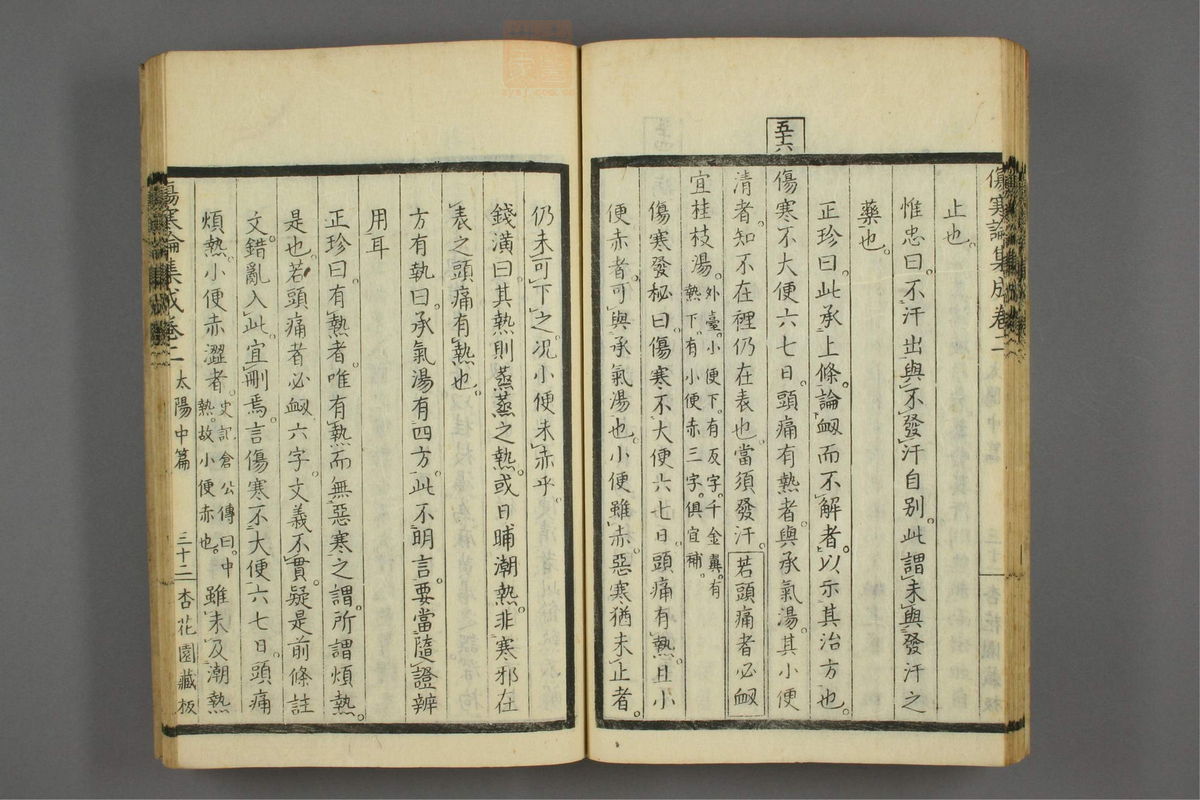 傷寒論集成卷二
止也。
惟忠曰。不汗出與不發汗自別。此謂未與發汗之
藥也。
正珍曰。此承上條。論衂而不解者。以示其治方也。
五十六
傷寒不大便六七日。頭痛有熱者。與承氣湯。其小便
清者。知不在裡仍在表也。當須發汗。若頭痛者必衂
宜桂枝湯。外臺。小便下。有反字。千金翼。有
熱下。有小便赤三字。俱宜補。
傷寒發秘曰。傷寒不大便六七日。頭痛有熱。且小
便赤者。可與承氣湯也。小便雖赤。惡寒猶未止者。
仍未可下之。况小便未赤乎。
錢潢曰。其熱則蒸蒸之熱。或日晡潮熱。非寒邪在
表之頭痛有熱也。
方有執曰。承氣湯有四方。此不明言。要當隨證辨
用耳
正珍曰。有熱者。唯有熱而無惡寒之謂。所謂煩熱。
是也。若頭痛者必衂六字。文義不貫。疑是前條註
文。錯亂入此。宜刪焉。言傷寒不大便六七日。頭痛
煩熱。小便赤澀者。史記倉公傳曰。中
熱。故小便赤也。雖未及潮熱
傷寒論集成卷二 太陽中篇 三十二 杏花園藏板